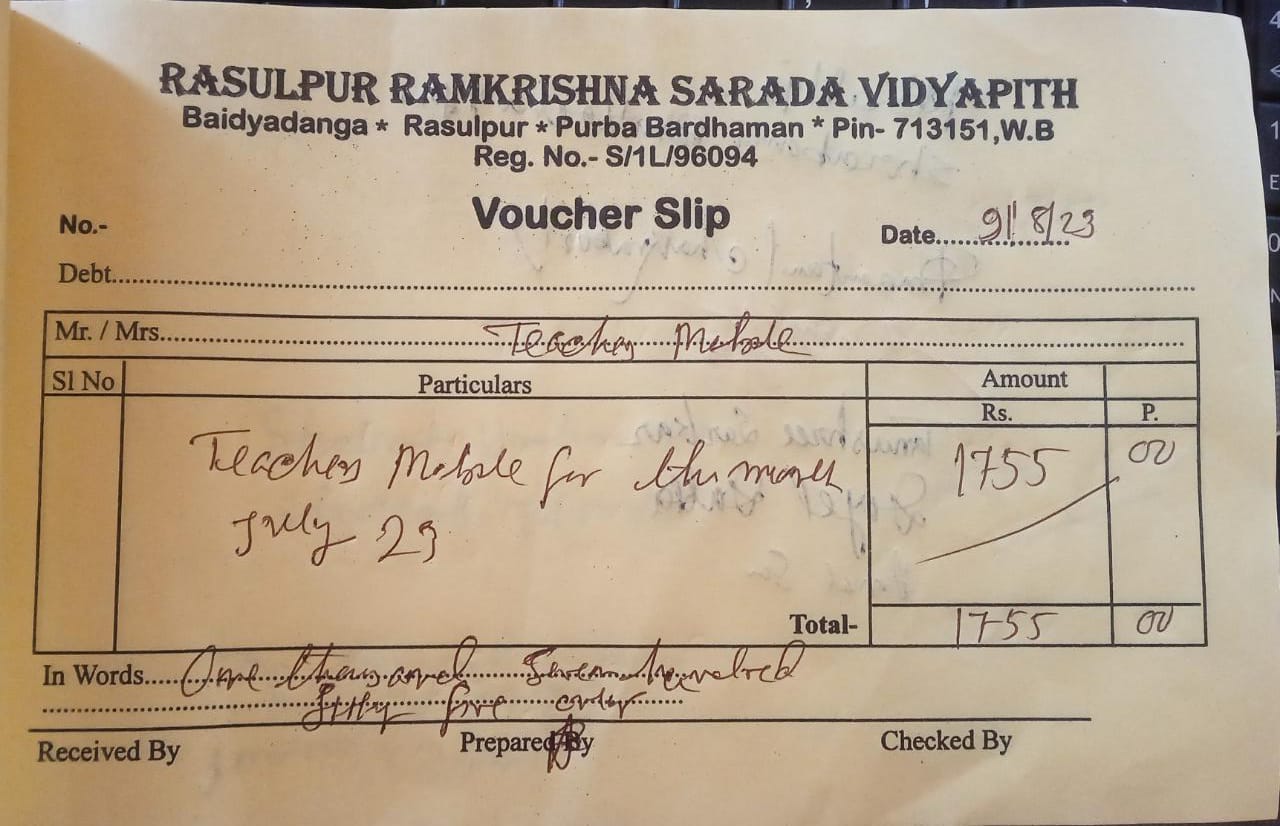 RASULPUR RAMKRISHNA SARADA VIDYAPITH
Baidyadanga * Rasulpur * Purba Bardhaman * Pin- 713151,W.B
Reg. No.- S/1L/96094
Voucher Slip
No.-
Date.................. 9/8/23
Debt..........................................................
Mr. / Mrs................ Teacher Mobile
Sl No Particulars Amount
Rs. P.
Teachers Mobile for the month 1755 00
July 23
Total- 1755 00
In Words..... One thousand Seven hundred
fifty five only
Received By Prepared By Checked By